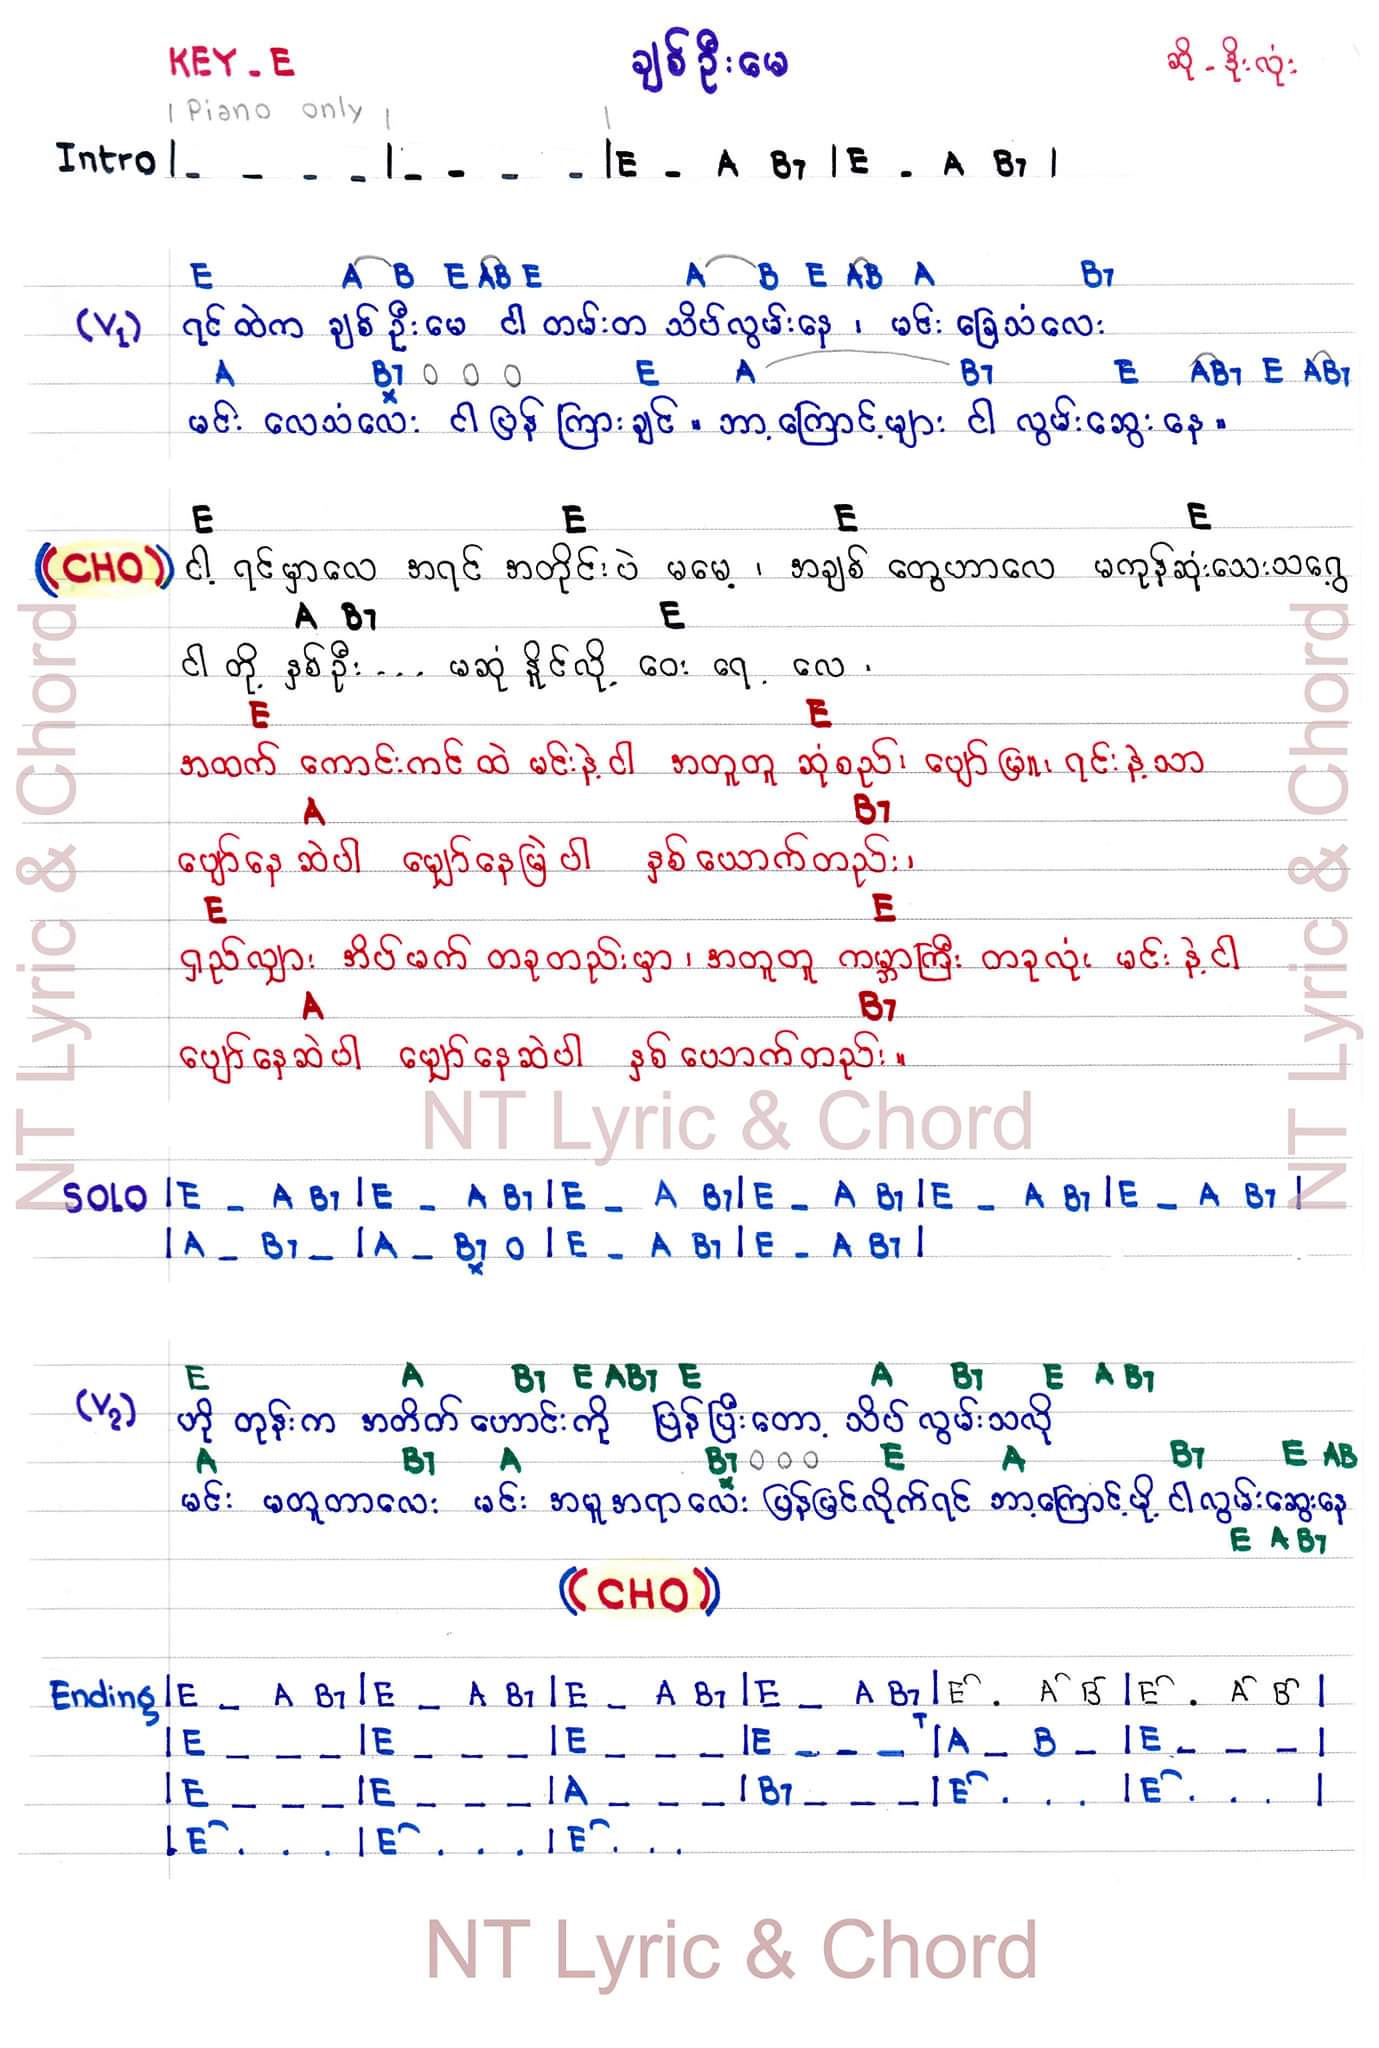 KEY - E
ချစ်ဦးမေ
ဆို - ဒိုးလုံး
| Piano only | |
Intro |- - - - |- - - - |E - A B7 |E - A B7 |
E A B E AB E A B E AB A B7
(V1) ရင်ထဲက ချစ်ဦးမေ ငါ တမ်းတ သိပ်လွမ်းနေ ၊ မင်း ခြေသံလေး
A B7 0 0 0 E A B7 E AB7 E AB7
x
မင်း လေသံလေး ငါ ပြန် ကြားချင် ။ ဘာ့ကြောင့်များ ငါ လွမ်းဆွေးနေ ။
E E E E
(CHO) ငါ့ ရင်မှာလေ အရင် အတိုင်းပဲ မမေ့ ၊ အချစ် တွေဟာလေ မကုန်ဆုံးသေးသရွေ့
A B7 E
ငါ တို့ နှစ်ဦး ... မဆုံ နိုင်လို့ ဝေး ရေ့ လေ ၊
E E
အထက် ကောင်းကင် ထဲ မင်းနဲ့ ငါ အတူတူ ဆုံစည်း၊ ပျော်မြူး၊ ရင်းနဲ့သာ
A B7
ပျော်နေဆဲပါ မျှော်နေမြဲပါ နှစ်ယောက်တည်း ၊
E E
ရှည်လျှား အိပ်မက် တခုတည်းမှာ ၊ အတူတူ ကမ္ဘာကြီး တခုလုံး မင်း နဲ့ ငါ
A B7
ပျော်နေဆဲပါ မျှော်နေဆဲပါ နှစ်ယောက်တည်း ။
NT Lyric & Chord
NT Lyric & Chord
NT Lyric & Chord
SOLO |E - A B7 |E - A B7 |E - A B7 |E - A B7 |E - A B7 |E - A B7 |
|A - B7 - |A - B7 0 |E - A B7 |E - A B7 |
x
E A B7 E AB7 E A B7 E A B7
(V2) ဟို တုန်းက အတိတ်ဟောင်းကို ပြန်ပြီးတော့ သိပ် လွမ်းသလို
A B7 A B7 0 0 0 E A B7 E AB
x
မင်း မတူတာလေး မင်း အမူအရာလေး ပြန်မြင်လိုက်ရင် ဘာ့ကြောင့်မို့ ငါလွမ်းဆွေးနေ
E A B7
(CHO)
Ending |E - A B7 |E - A B7 |E - A B7 |E - A B7 |E . A B |E . A B |
|E - - - |E - - - |E - - - |E - - - |A - B - |E - - - |
|E - - - |E - - - |A - - - |B7 - - - |E . . . |E . . . |
|E . . . |E . . . |E . . .
NT Lyric & Chord